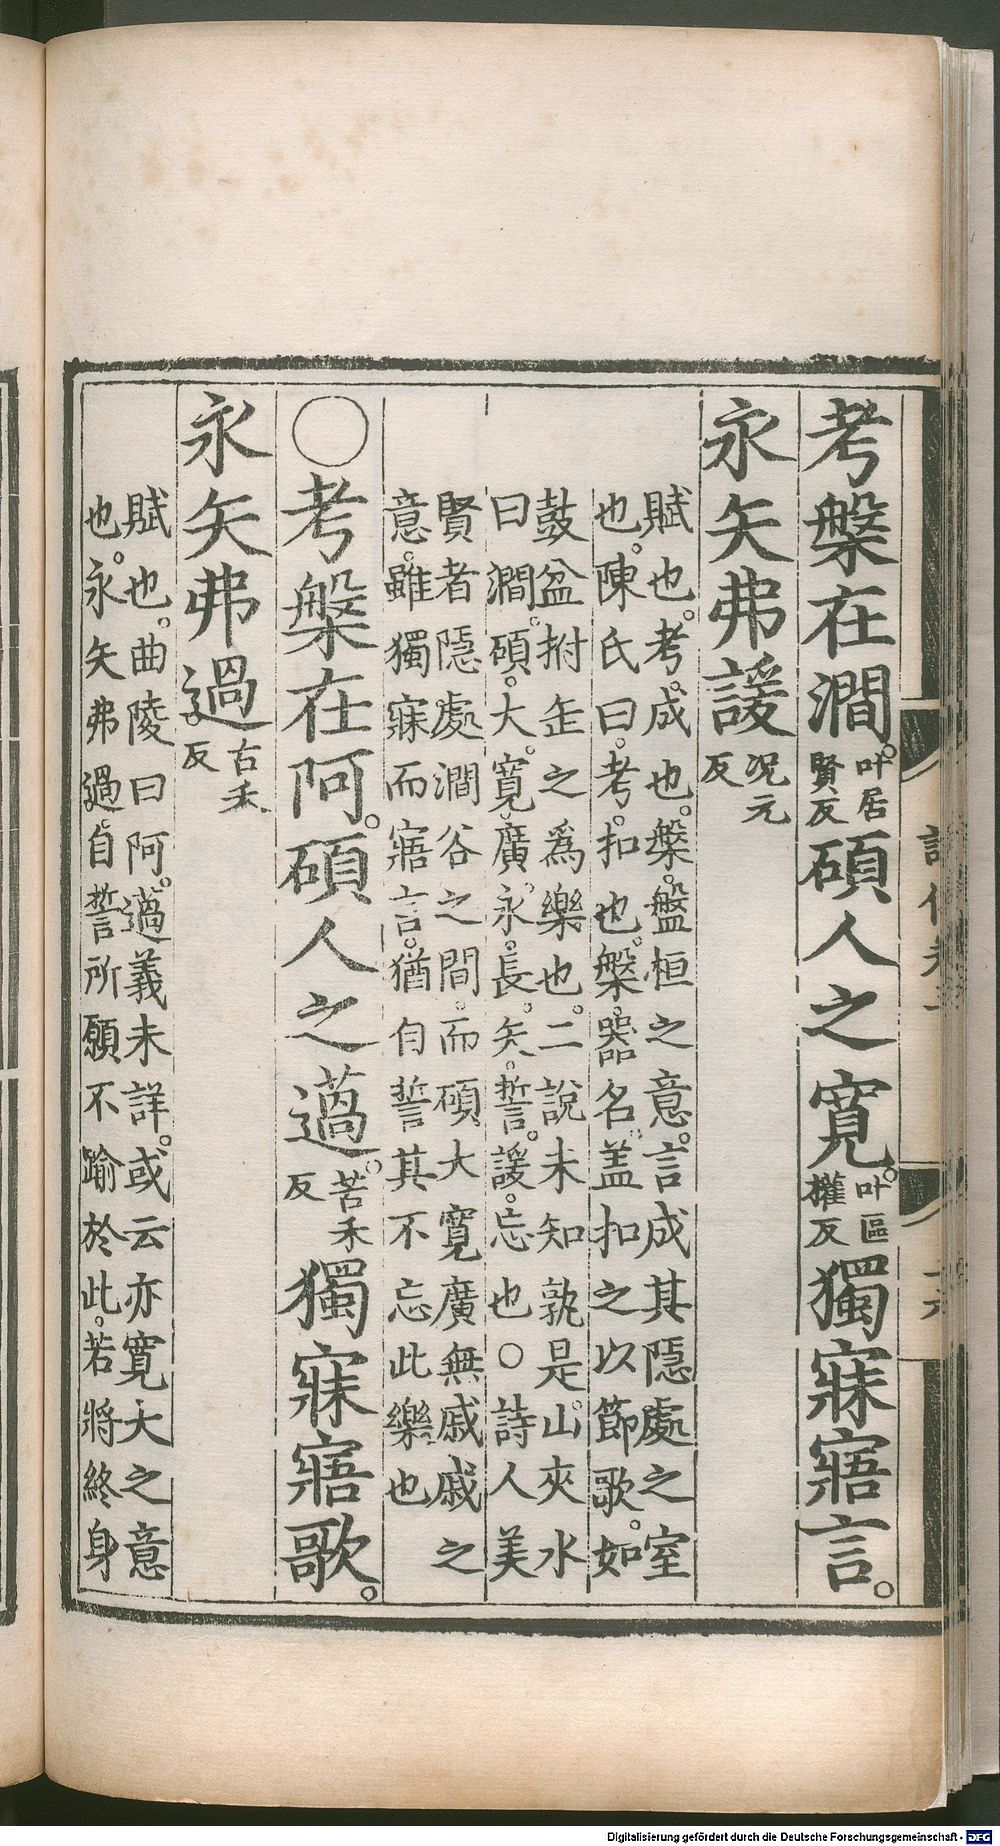 考槃在澗。叶居賢反碩人之寬。叶區權反獨寐寤言。
永矢弗諼况元反
賦也。考。成也。槃。盤桓之意。言成其隱處之室
也。陳氏曰。考。扣也。槃。器名。盖扣之以節歌。如
鼓盆拊缶之爲樂也。二說未知孰是。山夾水
曰澗。碩。大。寬。廣。永。長。矢。誓。諼。忘也○詩人美
賢者隱處澗谷之間。而碩大寬廣無戚戚之
意。雖獨寐而寤言。猶自誓其不忘此樂也
○考槃在阿。碩人之薖。苦禾反獨寐寤歌。
永矢弗過。古禾反
賦也。曲陵曰阿。薖義未詳。或云亦寬大之意
也。永矢弗過。自誓所願不踰於此。若將終身
Digitalisierung gefördert durch die Deutsche Forschungsgemeinschaft - DFG